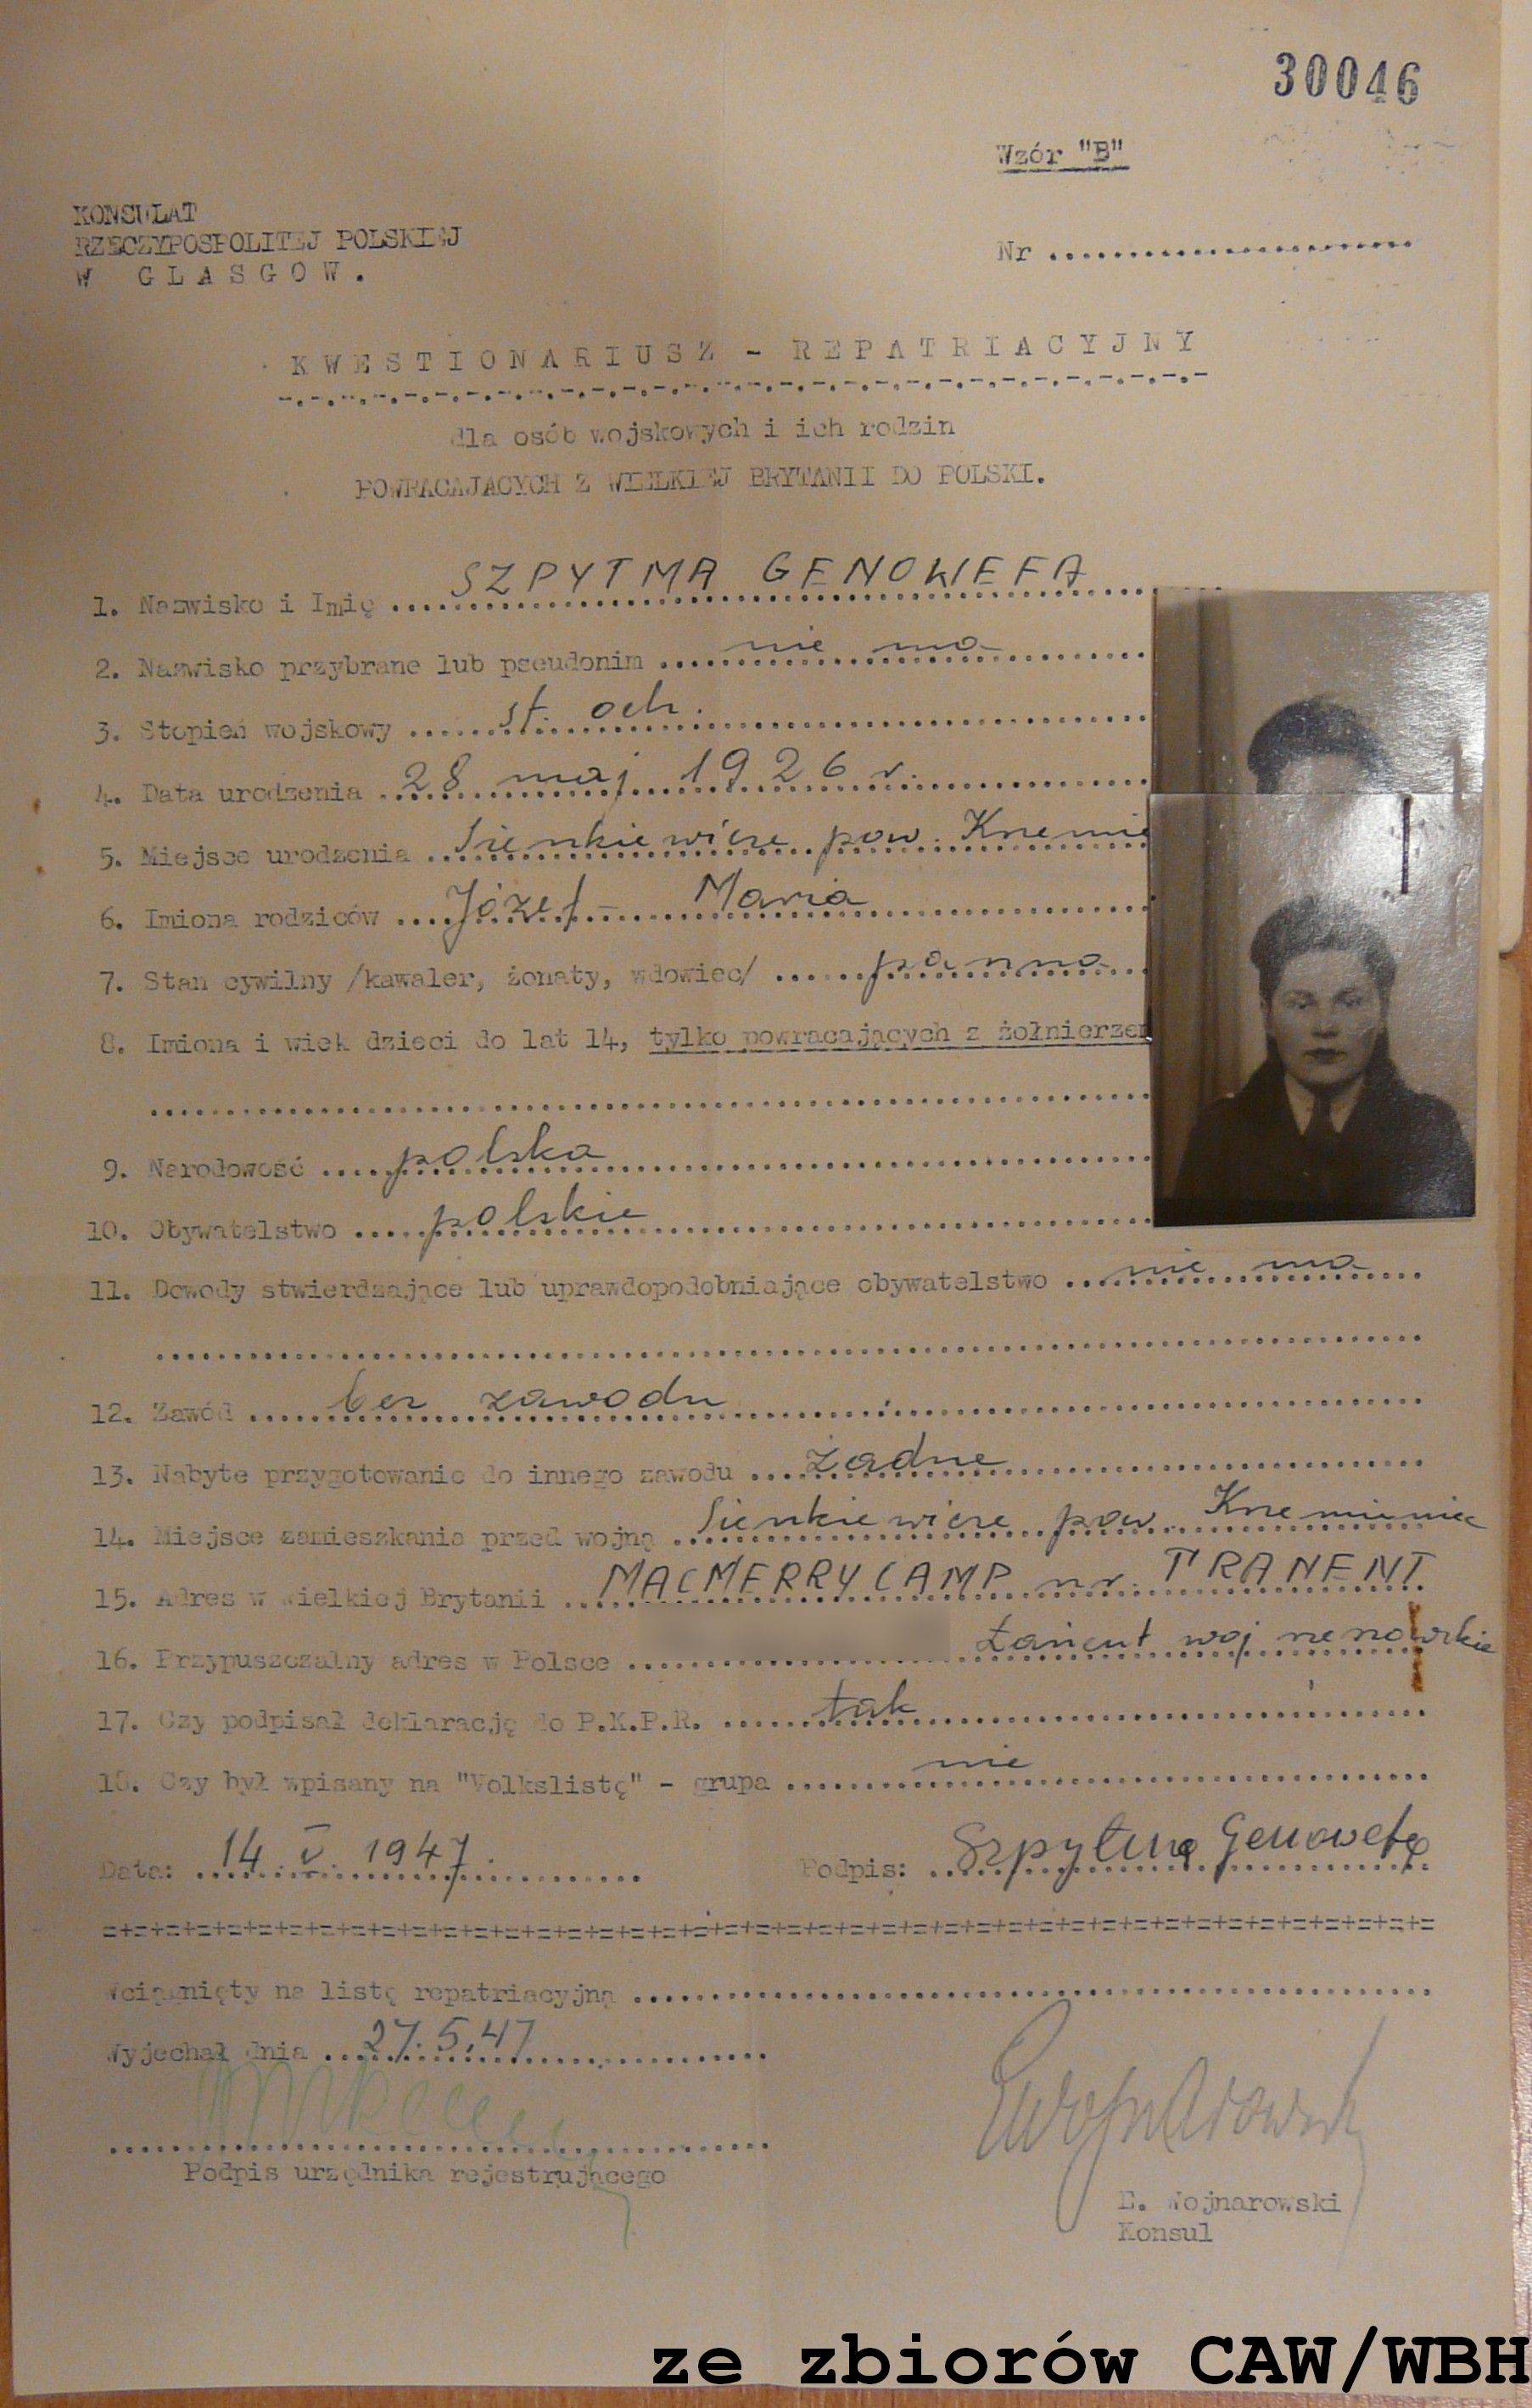 30046
Wzór "B"
KONSULAT
RZECZYPOSPOLITEJ POLSKIEJ
W GLASGOW.
Nr ..............................
KWESTIONARIUSZ - REPATRIACYJNY
dla osób wojskowych i ich rodzin
POWRACAJACYCH Z WIELKIEJ BRYTANII DO POLSKI.
1. Nazwisko i Imię ..... SZPYTMA GENOWEFA .....
2. Nazwisko przybrane lub pseudonim ..... nie ma .....
3. Stopień wojskowy ..... st. och. .....
4. Data urodzenia ..... 28 maj 1926 r. .....
5. Miejsce urodzenia ..... Sienkiewicze pow. Krzemie
6. Imiona rodziców ..... Józef – Maria .....
7. Stan cywilny /kawaler, żonaty, wdowiec/ ..... panna .....
8. Imiona i wiek dzieci do lat 14, tylko powracających z żołnierzem
9. Narodowość ..... polska .....
10. Obywatelstwo ..... polskie .....
11. Dowody stwierdzające lub uprawdopodobniające obywatelstwo ..... nie ma .....
12. Zawód ..... bez zawodu .....
13. Nabyte przygotowanie do innego zawodu ..... żadne .....
14. Miejsce zamieszkania przed wojną ..... Sienkiewicze pow. Krzemieniec
15. Adres w Wielkiej Brytanii ..... MACMERRY CAMP nr. TRANENT
16. Przypuszczalny adres w Polsce ..... Łańcut woj rzeszowskie
17. Czy podpisał deklarację do P.K.P.R. ..... tak .....
18. Czy był wpisany na "Volkslistę" - grupa ..... nie .....
Data: ..... 14 V 1947. ..... Podpis: ..... Szpytma Genowefa
=+=+=+=+=+=+=+=+=+=+=+=+=+=+=+=+=+=+=+=+=+=+=+=+=+=+=+=+=+=+=+=+=+=+=+=+=+=+=+=+=+=+=
Wciągnięty na listę repatriacyjną ..............................
Wyjechał dnia ..... 27.5.47 .....
Podpis urzędnika rejestrującego
E. Wojnarowski
Konsul
ze zbiorów CAW/WBH